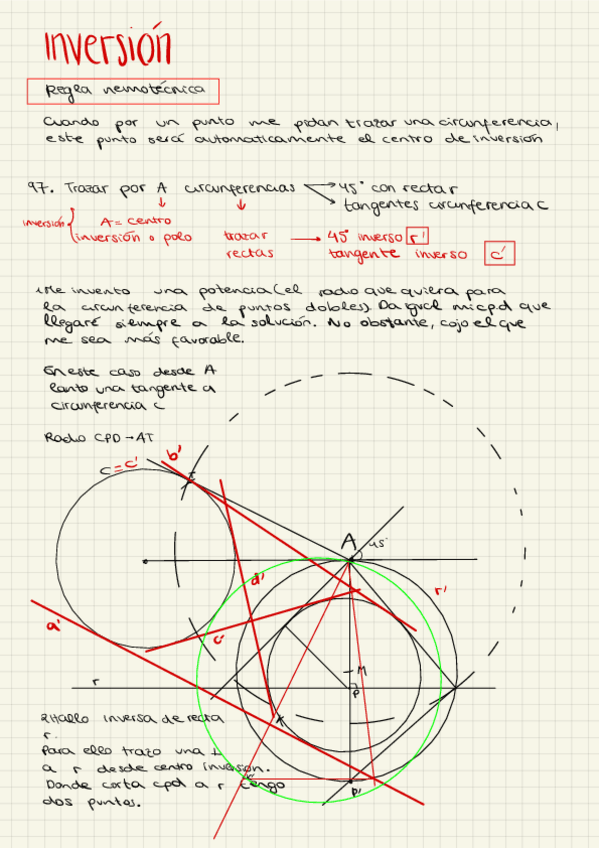 inversión
Regla nemotécnica
Cuando por un punto me pidan trazar una circunferencia,
este punto será automaticamente el centro de inversión
97. Trazar por A circunferencias 45° con recta r
tangentes circunferencia c
inversión A = centro
inversión o polo trazar rectas 45° inverso r'
tangente inverso c'
1. Me invento una potencia (el radio que quiera para
la circunferencia de puntos dobles). Da igual mi cpd que
llegaré siempre a la solución. No obstante, cojo el que
me sea más favorable.
En este caso desde A
lanto una tangente a
circunferencia c
Radio CPD → AT
c = c'
b'
A
45°
d'
r'
a'
c'
M
r
P
2. Hallo inversa de recta
r.
Para ello trazo una ⊥
a r desde centro inversión.
Donde corta cpd a r tengo
dos puntos.
P'